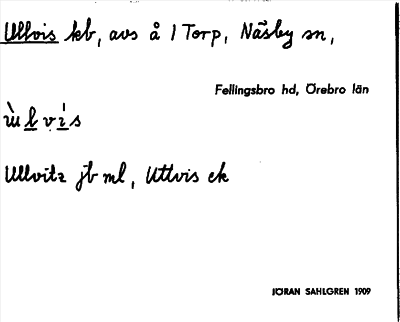 Ullvis kb, avs å 1 Torp, Näsby sn,
Fellingsbro hd, Örebro län
ùlvi̇s
Ullvitz jb ml, Utlvis ek
JÖRAN SAHLGREN 1909